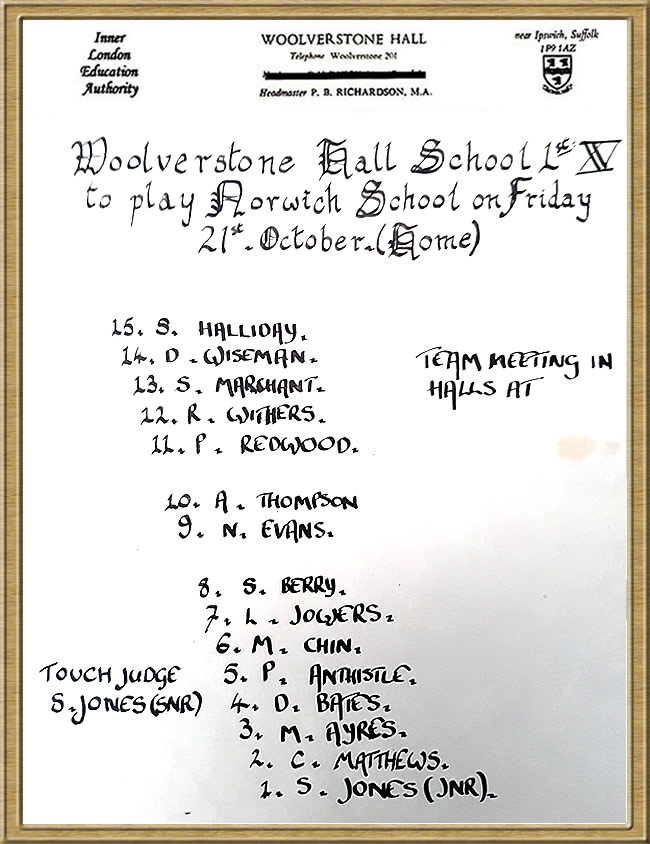 Inner
London
Education
Authority
WOOLVERSTONE HALL
Telephone Woolverstone 201
Headmaster P. B. RICHARDSON, M.A.
near Ipswich, Suffolk
IP9 1AZ
Woolverstone Hall School 1st XV
to play Norwich School on Friday
21st. October. (Home)
15. S. HALLIDAY.
14. D. WISEMAN.
13. S. MARCHANT.
12. R. WITHERS.
11. P. REDWOOD.
TEAM MEETING IN
HALLS AT
10. A. THOMPSON
9. N. EVANS.
8. S. BERRY.
7. L. JOWERS.
6. M. CHIN.
5. P. ANTHISTLE.
4. D. BATES.
3. M. AYRES.
2. C. MATTHEWS.
1. S. JONES (JNR).
TOUCH JUDGE
S. JONES (SNR)